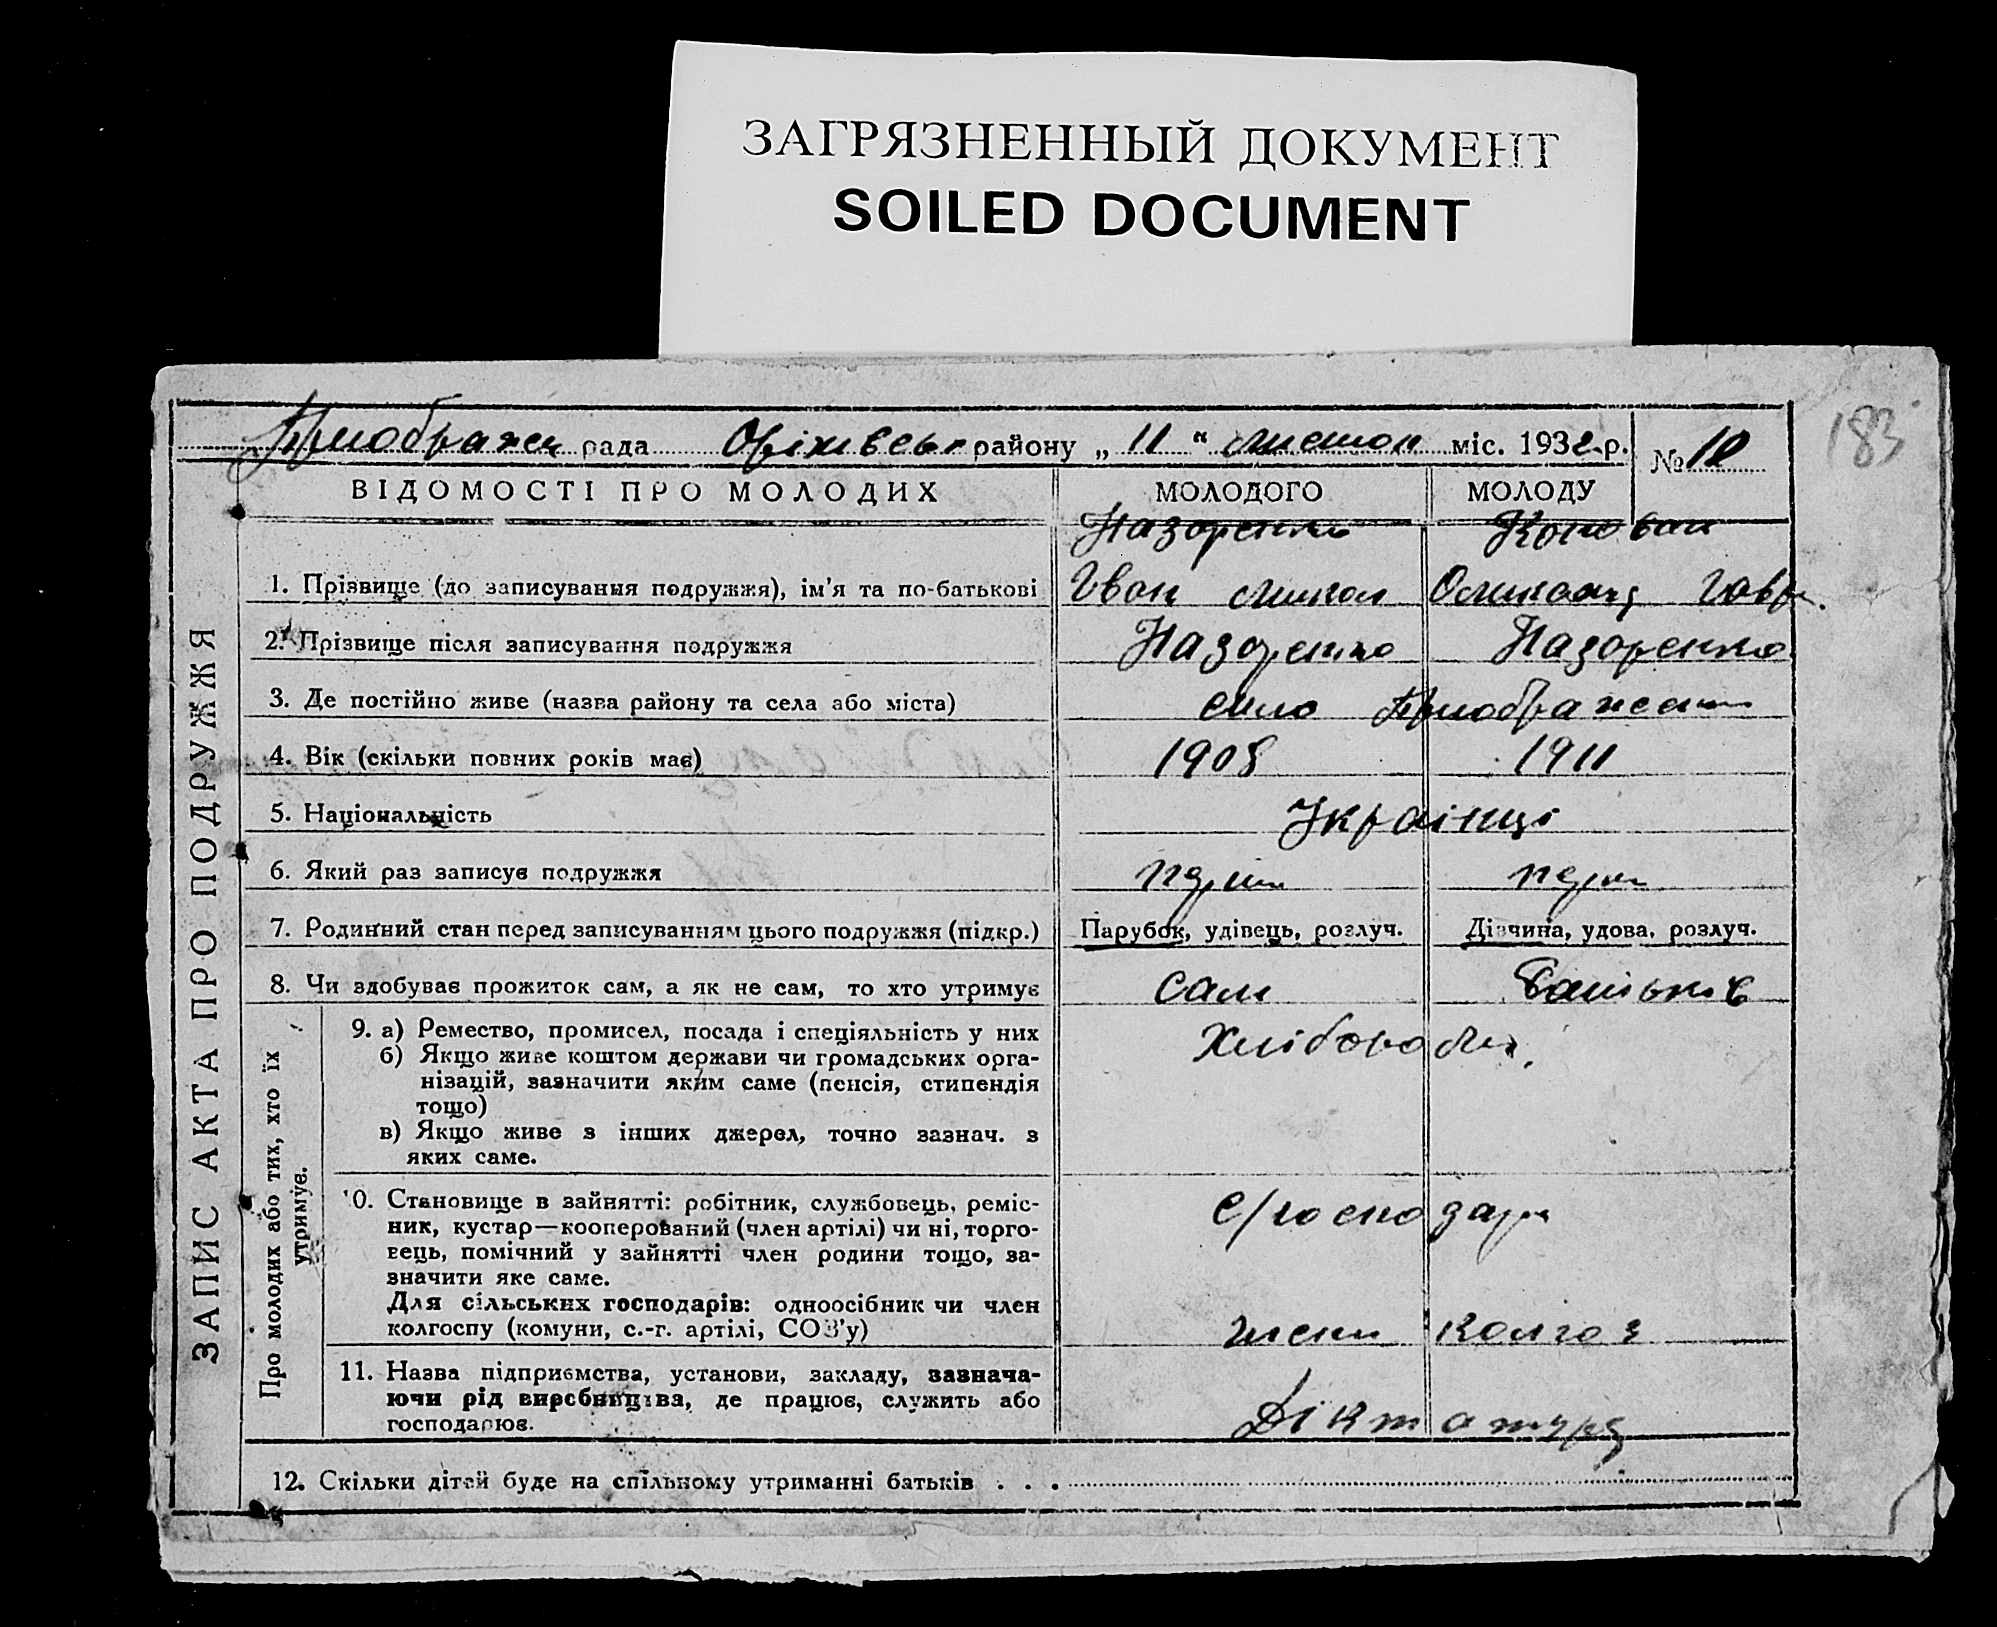 ЗАГРЯЗНЕННЫЙ ДОКУМЕНТ
SOILED DOCUMENT
183
рада Оріхівськ району „ 11 " листоп міс. 1932 р. №
ВІДОМОСТІ ПРО МОЛОДИХ МОЛОДОГО МОЛОДУ
Назаренко Коновал
1. Прізвище (до записування подружжя), ім'я та по-батькові Іван Микол
2. Прізвище після записування подружжя Назаренко Назаренко
3. Де постійно живе (назва району та села або міста) село
4. Вік (скільки повних років має) 1908 1911
5. Національність Українці
6. Який раз записує подружжя перш перш
7. Родинний стан перед записуванням цього подружжя (підкр.) Парубок, удівець, розлуч. Дівчина, удова, розлуч.
8. Чи здобуває прожиток сам, а як не сам, то хто утримує сам
9. а) Ремество, промисел, посада і спеціяльність у них Хлібороби
б) Якщо живе коштом держави чи громадських орга-
нізацій, зазначити яким саме (пенсія, стипендія
тощо)
в) Якщо живе з інших джерел, точно зазнач. з
яких саме.
10. Становище в зайнятті: робітник, службовець, реміс- с/господар
ник, кустар—кооперований (член артілі) чи ні, торго-
вець, помічний у зайнятті член родини тощо, за-
значити яке саме.
Для сільських господарів: одноосібник чи член
колгоспу (комуни, с.-г. артілі, СОЗ'у) члени колгоз
11. Назва підприємства, установи, закладу, зазнача-
ючи рід виробництва, де працює, служить або Діктатура
господарює.
12. Скільки дітей буде на спільному утриманні батьків . . .
ЗАПИС АКТА ПРО ПОДРУЖЖЯ
Про молодих або тих, хто їх
утримує.